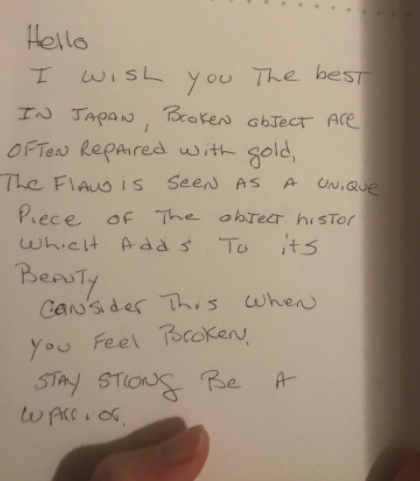 Hello
I wish you The best
IN JAPAN, Broken object are
OFTEN Repaired with gold,
The Flaw is seen as a unique
Piece of The object histor
which Adds To its
Beauty
Consider This when
you Feel Broken.
STAY STRONG Be A
warrior.